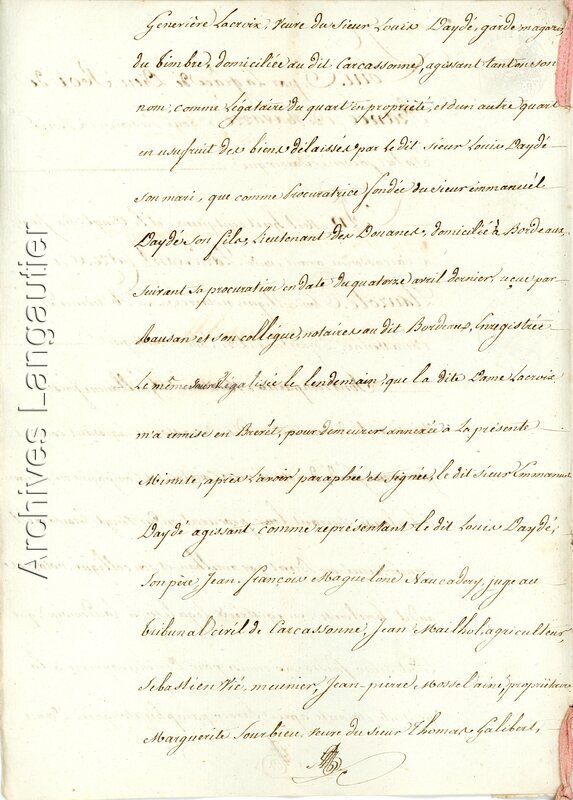 Genevière Lacroix, veuve du Sieur Louis Daydé, garde magasin
du timbre, domiciliée au dit Carcassonne, agissant tant en son
nom, comme Légataire du quart en propriété, et d'un autre quart
en usufruit des biens délaissés par le dit sieur Louis Daydé
son mari, que comme Procuratrice fondée du sieur Emmanuël
Daydé son fils, Lieutenant des Douanes, domicilié à Bordeaux,
suivant sa procuration en date du quatorze avril dernier, reçue par
et son collègue, notaires au dit Bordeaux, Enregistrée
Le même jour Légalisée le lendemain, que la dite Dame Lacroix
m'a remise en Brevet, pour demeurer annexée à la présente
Minute, après l'avoir paraphée et signée, le dit sieur Emmanuel
Daydé agissant comme représentant le dit Louis Daydé,
son père, Jean-françois Maguelone Naucadery, juge au
tribunal civil de Carcassonne, Jean Mailhol, agriculteur,
Sebastien Vié, meunier, Jean-pierre propriétaire
Marguerite Sourbieu, veuve du Sieur Thomas Galibert,
Archives Langautier